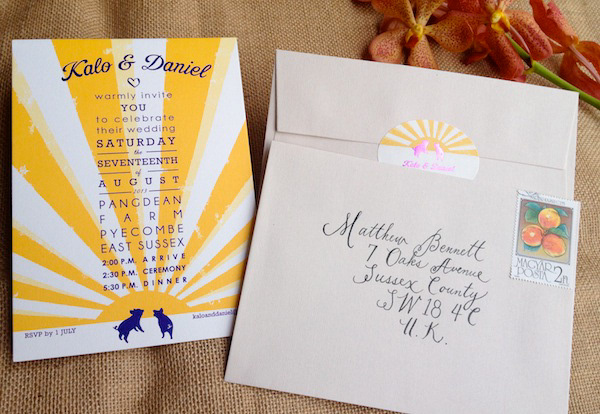 Kalo & Daniel
warmly invite
YOU
to celebrate
their wedding
SATURDAY
the
SEVENTEENTH
of
AUGUST
2013
PANGDEAN
FARM
PYECOMBE
EAST SUSSEX
2:00 P.M. ARRIVE
2:30 P.M. CEREMONY
5:30 P.M. DINNER
RSVP by 1 JULY
Kalo & Daniel
Matthew Bennett
7 Oaks Avenue
Sussex County
SW18 4C
U.K.
MAGYAR
POSTA